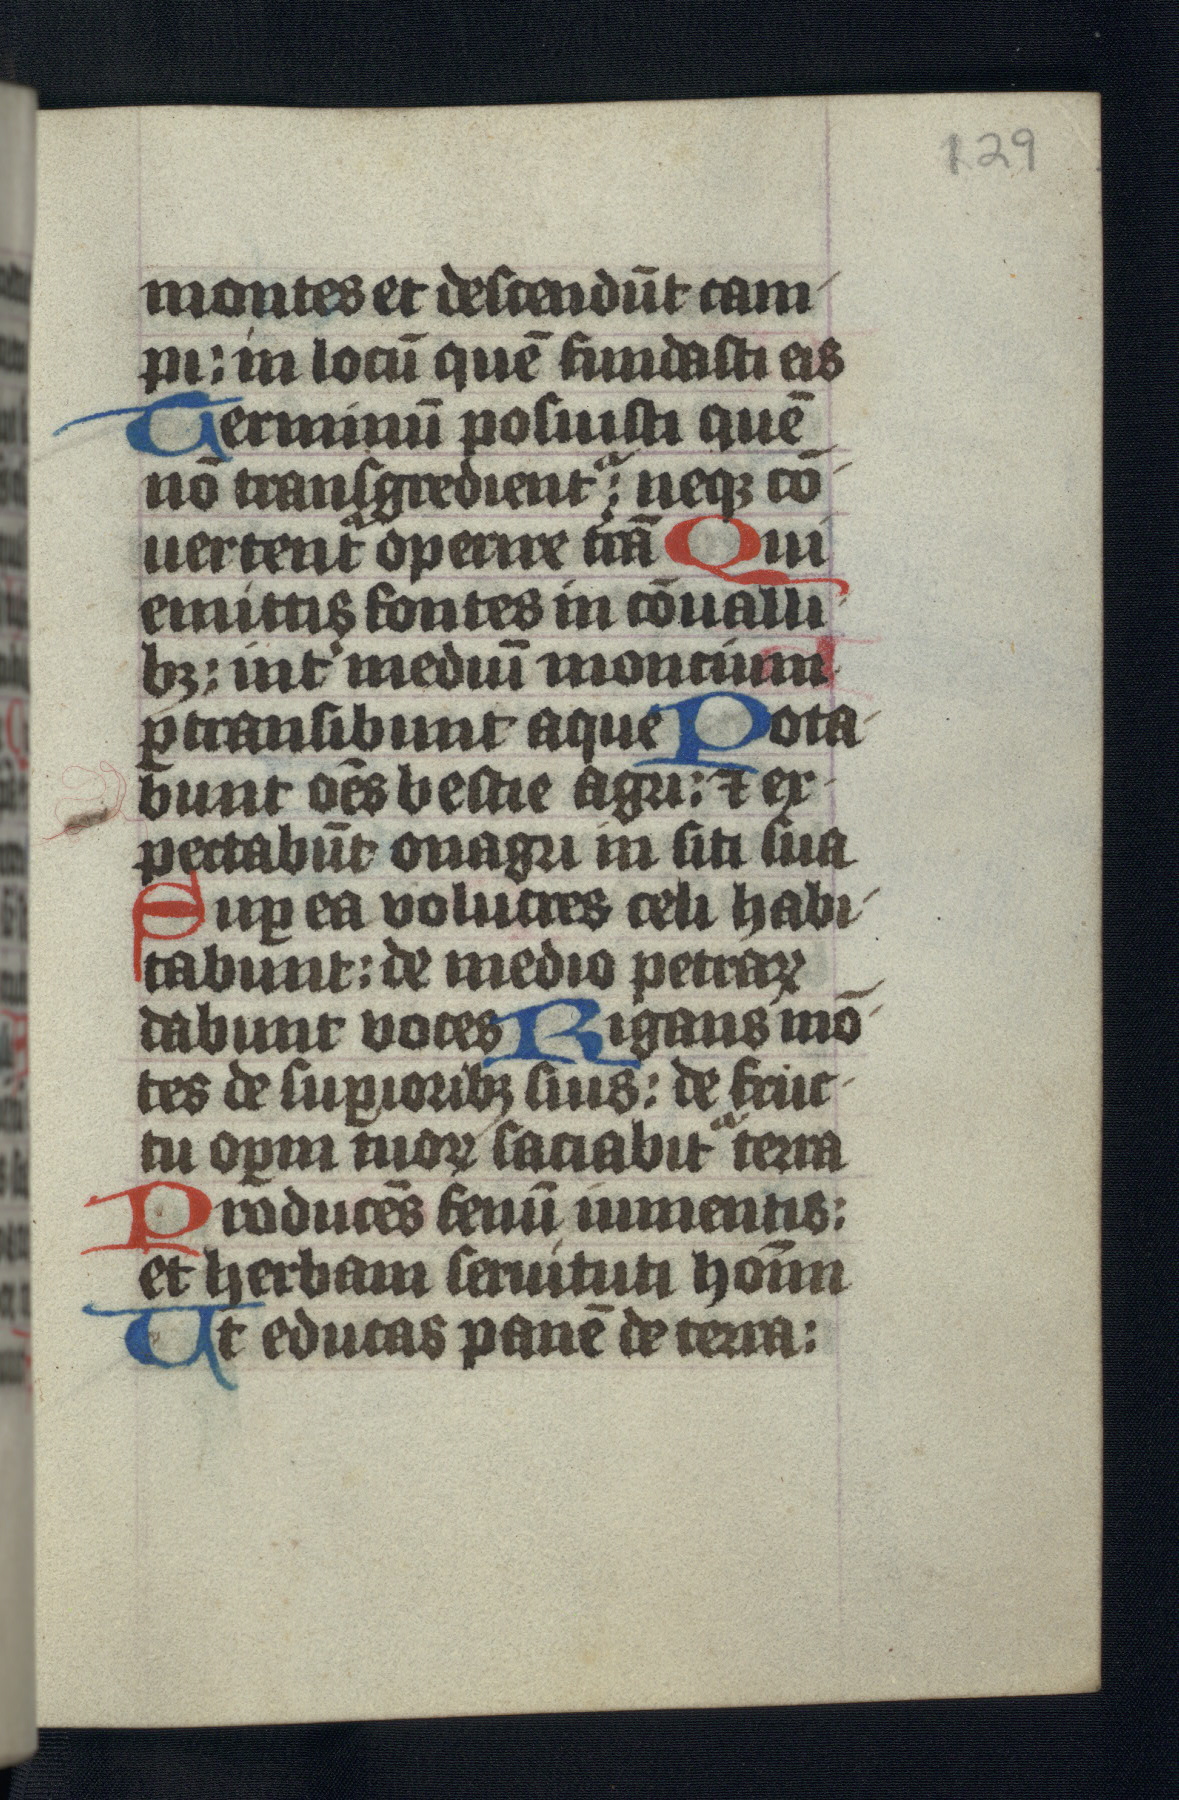 129
montes et descendūt cam
pi: in locū quē fundasti eis
Terminū posuisti quē
nō transgredientᵃ: neqꝫ cō
uertentᵃ operire t̄rā Qui
emittis fontes in cōualli
bꝫ: int᷑ mediū montium
ꝑtransibunt aque Pota
bunt oēs bestie agri: ⁊ ex
pectabūt onagri in siti sua
Suꝑ ea volucres celi habi
tabunt: de medio petraꝝ
dabunt voces Rigans mō
tes de suꝑioribꝫ suis: de fruc
tu oꝑm tuoꝝ saciabitᵃ terra
Producēs fenū iumentis:
et herbam seruituti hoīm
Ut educas panē de terra: